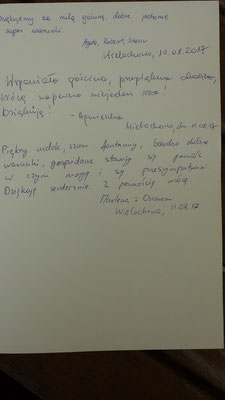 Dziękujemy za miłą gościnę, dobre jedzenie
super warunki.
Agata, Robert,
Wielochowo, 10.08.2017
Wspaniała gościna, przepiękna okolica,
Wrócę napewno niejeden raz!
Dziękuję! - Agnieszka
Wielochowo, dn. 11.08.17
Piękny widok, szum fontanny, bardzo dobre
warunki, gospodarze starają się pomóc
w czym mogą i są przesympatyczni
Dziękuję serdecznie. Z pewnością wrócę
Marlena z Oskarem
Wielochowo, 11.08.17